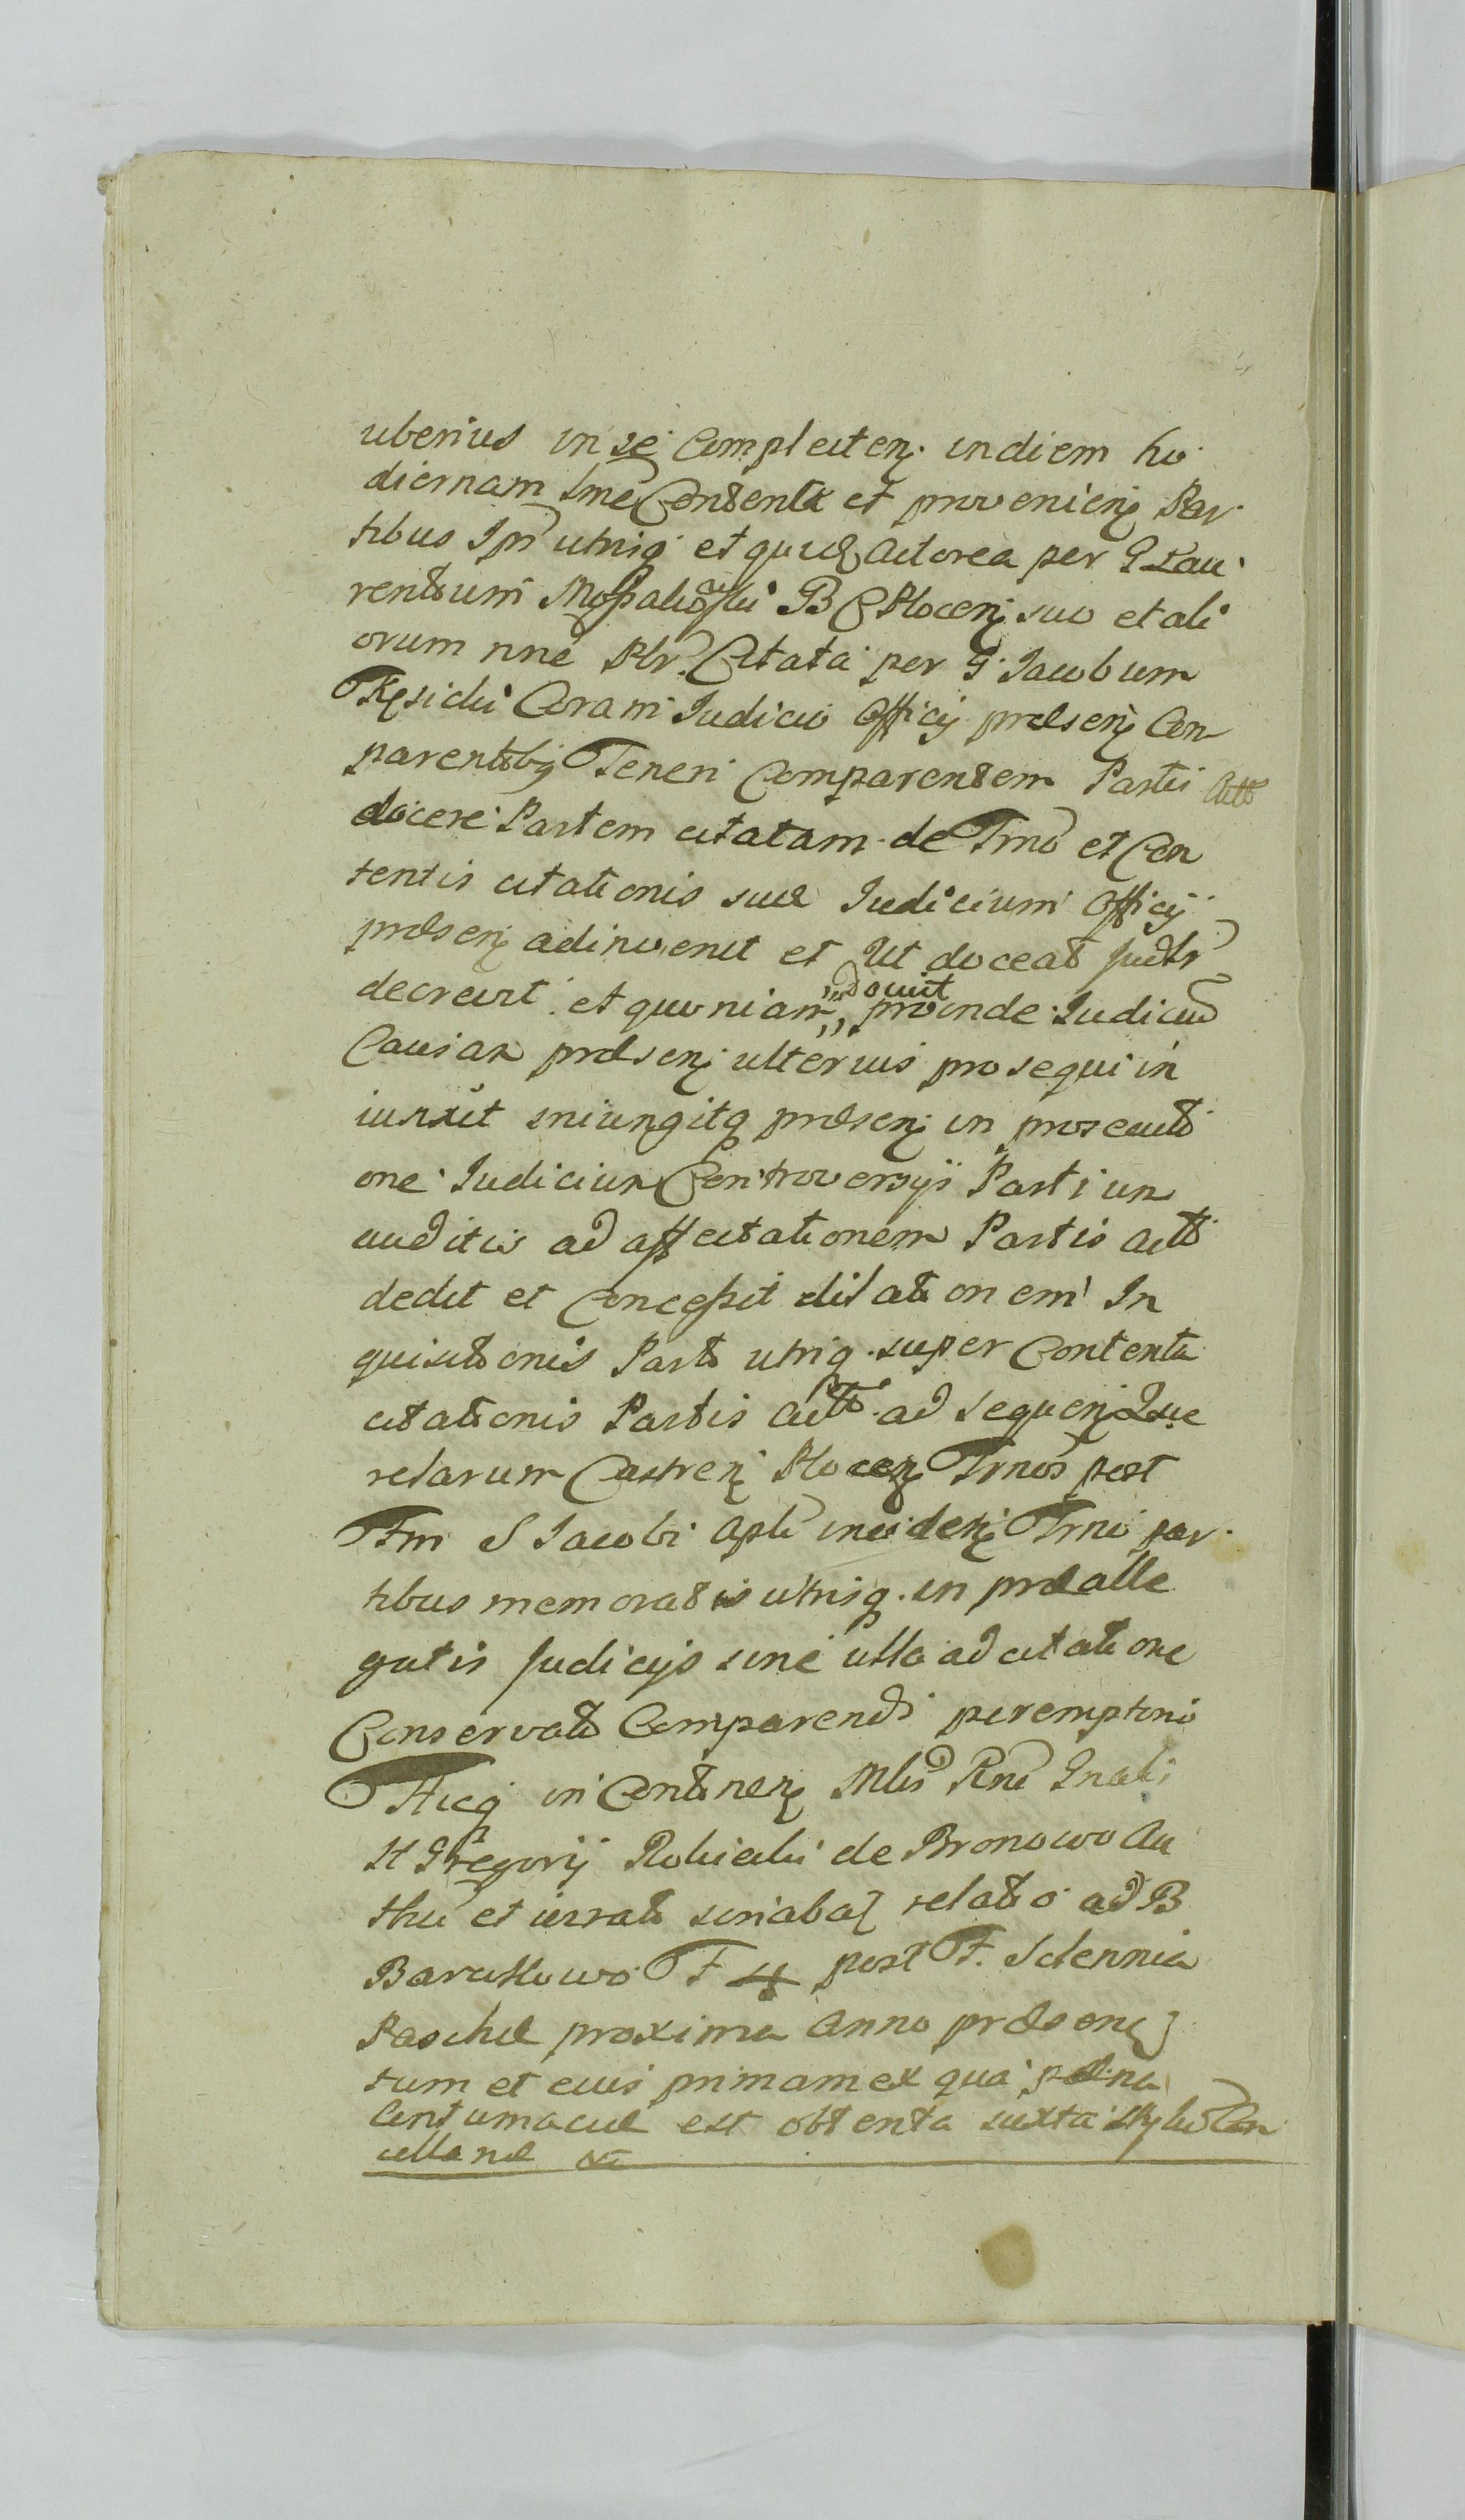 uberius in se Complecten. in diem ho
diernam Tme Contenta et provenien. Par
tibus Ipis utrisq. et quidē Actorea per G Lau
rentium B C Plocen. suo et ali
orum nne Plr. Citata per G. Iacobum
Coram Iudicio Officij præsen. Con
parentibq Teneri Comparentem Partis Actt
docere Partem citatam de Tmo et Con
tentis citationis suæ Iudicium Officij
præsen. adinvenit et Ut doceat
decrevit. et quoniam „docuit„ proinde Iudiciu
Causam præsen. ulterius prosequi in
iunxit iniungitq præsen. in prosecuti
one Iudicium Controversijs Partium
auditis ad affectationem Partis actt
dedit et Concessit dilationem In
quisitionis Part. utriq. super Contenta
citationis Partis Actt. ad sequen. Que
relarum Castren. Plocen. Tmos post
Ftm S Iacobi Apli inciden. Tmo par
tibus memoratis utrisq. in prælle
gatis Iudicijs sine ulla adcitatione
Conservato Comparendi peremptorio
Hicq in Continen. Mlis Rnd Gnali
H Gregorij de Bronowo Au
thē et iurat. scriabat relatio ad B
F 4 post F. Solennia
Paschæ proxima Anno præsen.
tum et eius primam ex qua pæna
Contumaciæ est obtenta iuxta stylū Can
cellariæ &